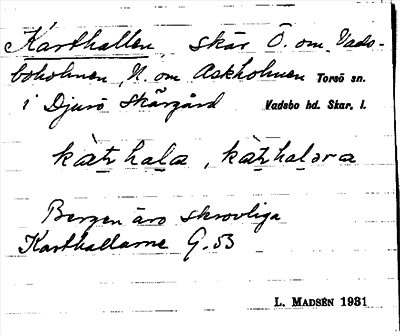 Karthallen, skär Ö. om Vads-
boholmen, N. om Askholmen Torsö sn.
i Djurö skärgård Vadsbo hd. Skar. l.
kàt̥hala, kàt̥haləra
Bergen äro skrovliga
Karthallarne G. 53
L. MADSÉN 1931